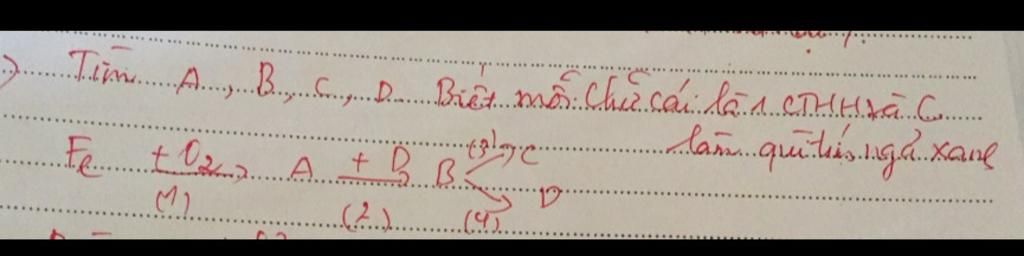 Tìm A, B, C, D Biết mỗi chữ cái là 1 CTHH và C
làm quì tím ngả xanh
Fe +O2 A + D B (3) C
(1) (2) (4) D